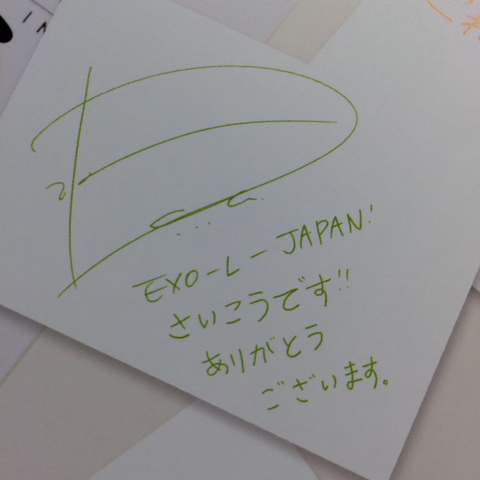 EXO-L-JAPAN!
さいこうです!!
ありがとう
ございます。